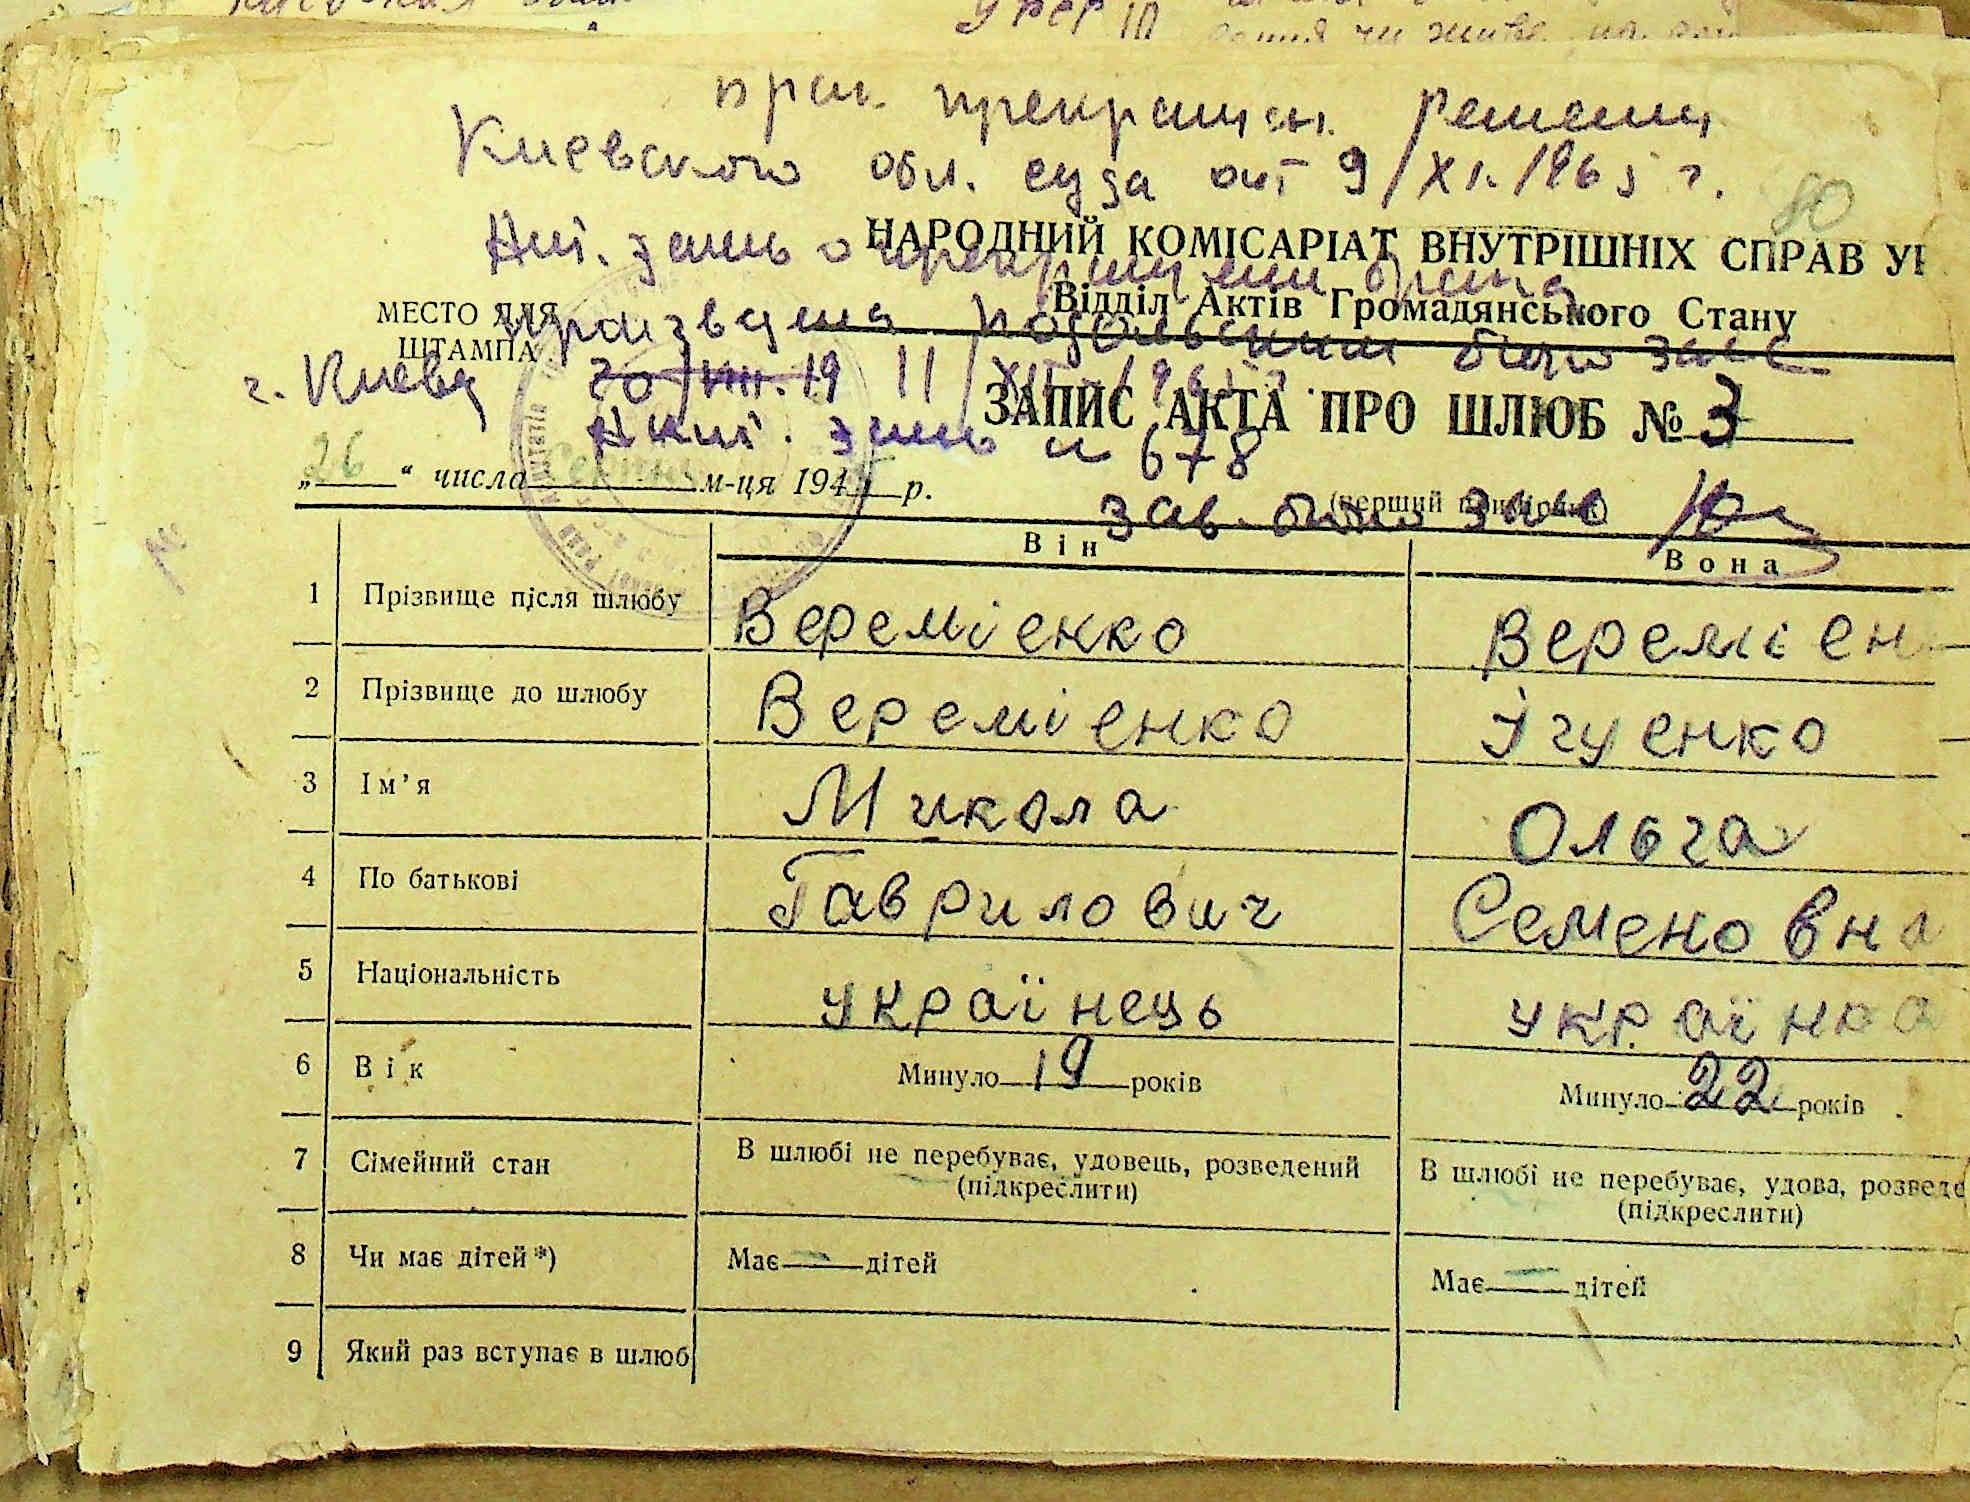 УРСР
брак прекращен. Решения
Киевского обл. суда от 9/XI.1965 г.
80
НАРОДНИЙ КОМІСАРІАТ ВНУТРІШНІХ СПРАВ УР
Акт. запись о прекращении брака
Відділ Актів Громадянського Стану
МЕСТО ДЛЯ
ШТАМПА
произведена Подольским бюро загс
г. Киева 20/VIII.19 11/XII.1965 г.
ЗАПИС АКТА ПРО ШЛЮБ № 3
Акт. запись № 678
„26“ числа м-ця 194 р.
(перший примірник)
Зав. бюро загс
Він
Вона
1 Прізвище після шлюбу Веремієнко Веремієн
2 Прізвище до шлюбу Веремієнко Ігуенко
3 Ім’я Микола Ольга
4 По батькові Гаврилович Семеновна
5 Національність українець українка
6 Вік Минуло 19 років Минуло 22 років
7 Сімейний стан В шлюбі не перебуває, удовець, розведений В шлюбі не перебуває, удова, розведе
(підкреслити) (підкреслити)
8 Чи має дітей *) Має — дітей Має — дітей
9 Який раз вступає в шлюб